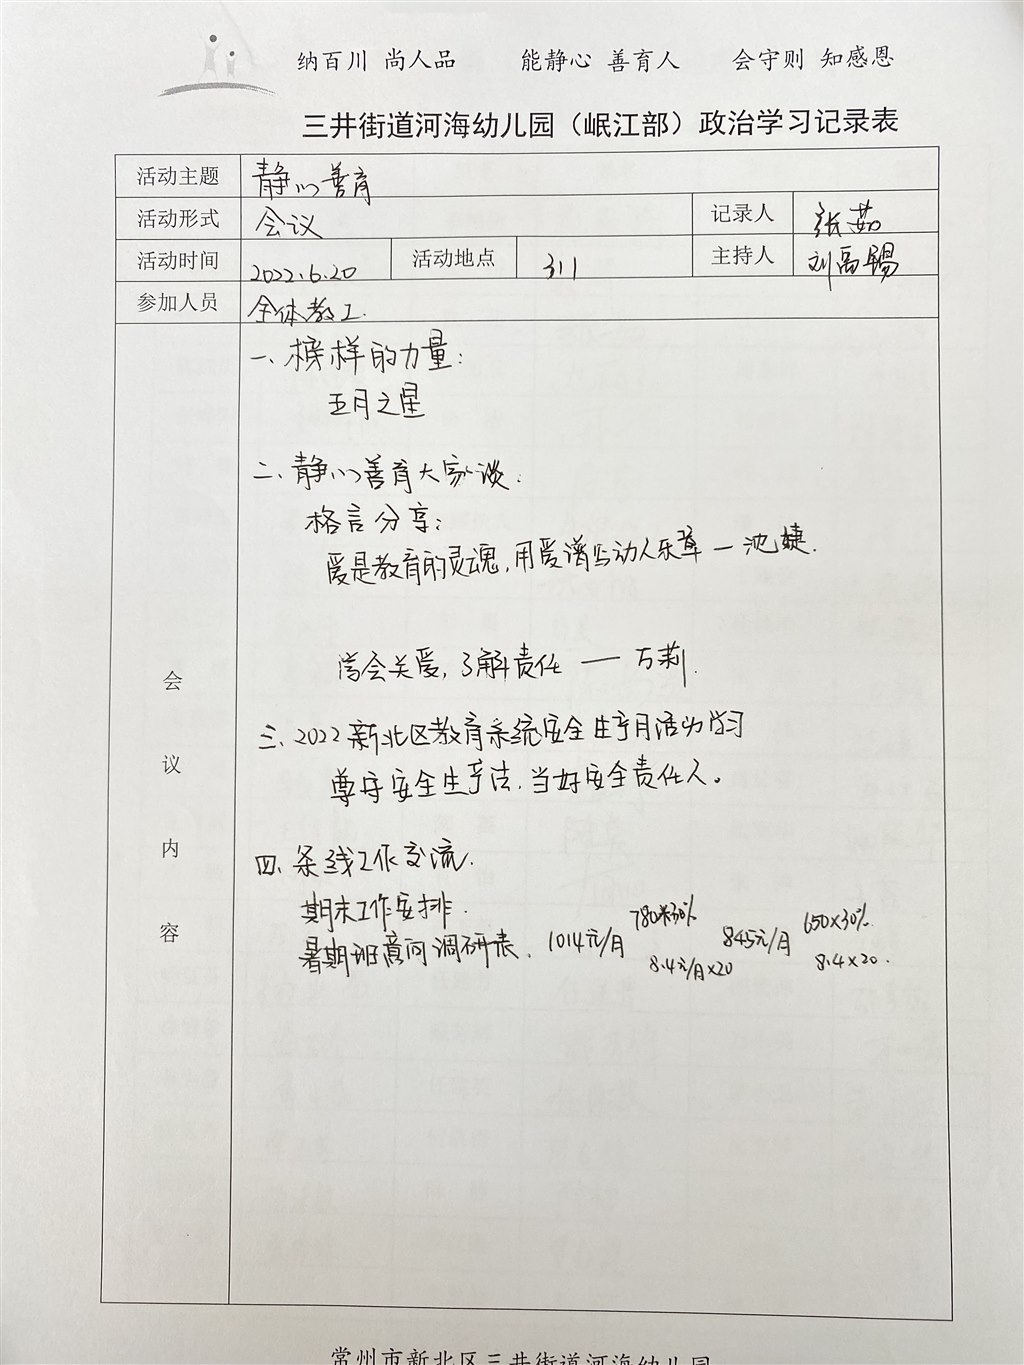 纳百川 尚人品 能静心 善育人 会守则 知感恩
三井街道河海幼儿园（岷江部）政治学习记录表
活动主题 静心善育
活动形式 会议 记录人 张茹
活动时间 2022.6.20 活动地点 311 主持人 刘高锡
参加人员 全体教工.
会议内容
一、榜样的力量：
五月之星
二、静心善育大家谈：
格言分享：
爱是教育的灵魂，用爱谱写动人乐章 — 沈婕.
学会关爱，了解责任 — 万莉.
三、2022新北区教育系统安全生产月活动学习
尊守安全生产法，当好安全责任人。
四、条线工作交流.
期末工作安排.
暑期班意向调研表. 1014元/月 780×30% 8.4元/月×20 845元/月 650×30% 8.4×20.
常州市新北区三井街道河海幼儿园